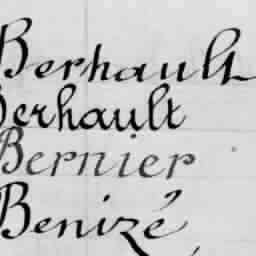 Berhault
Berhault
Bernier
Benizé